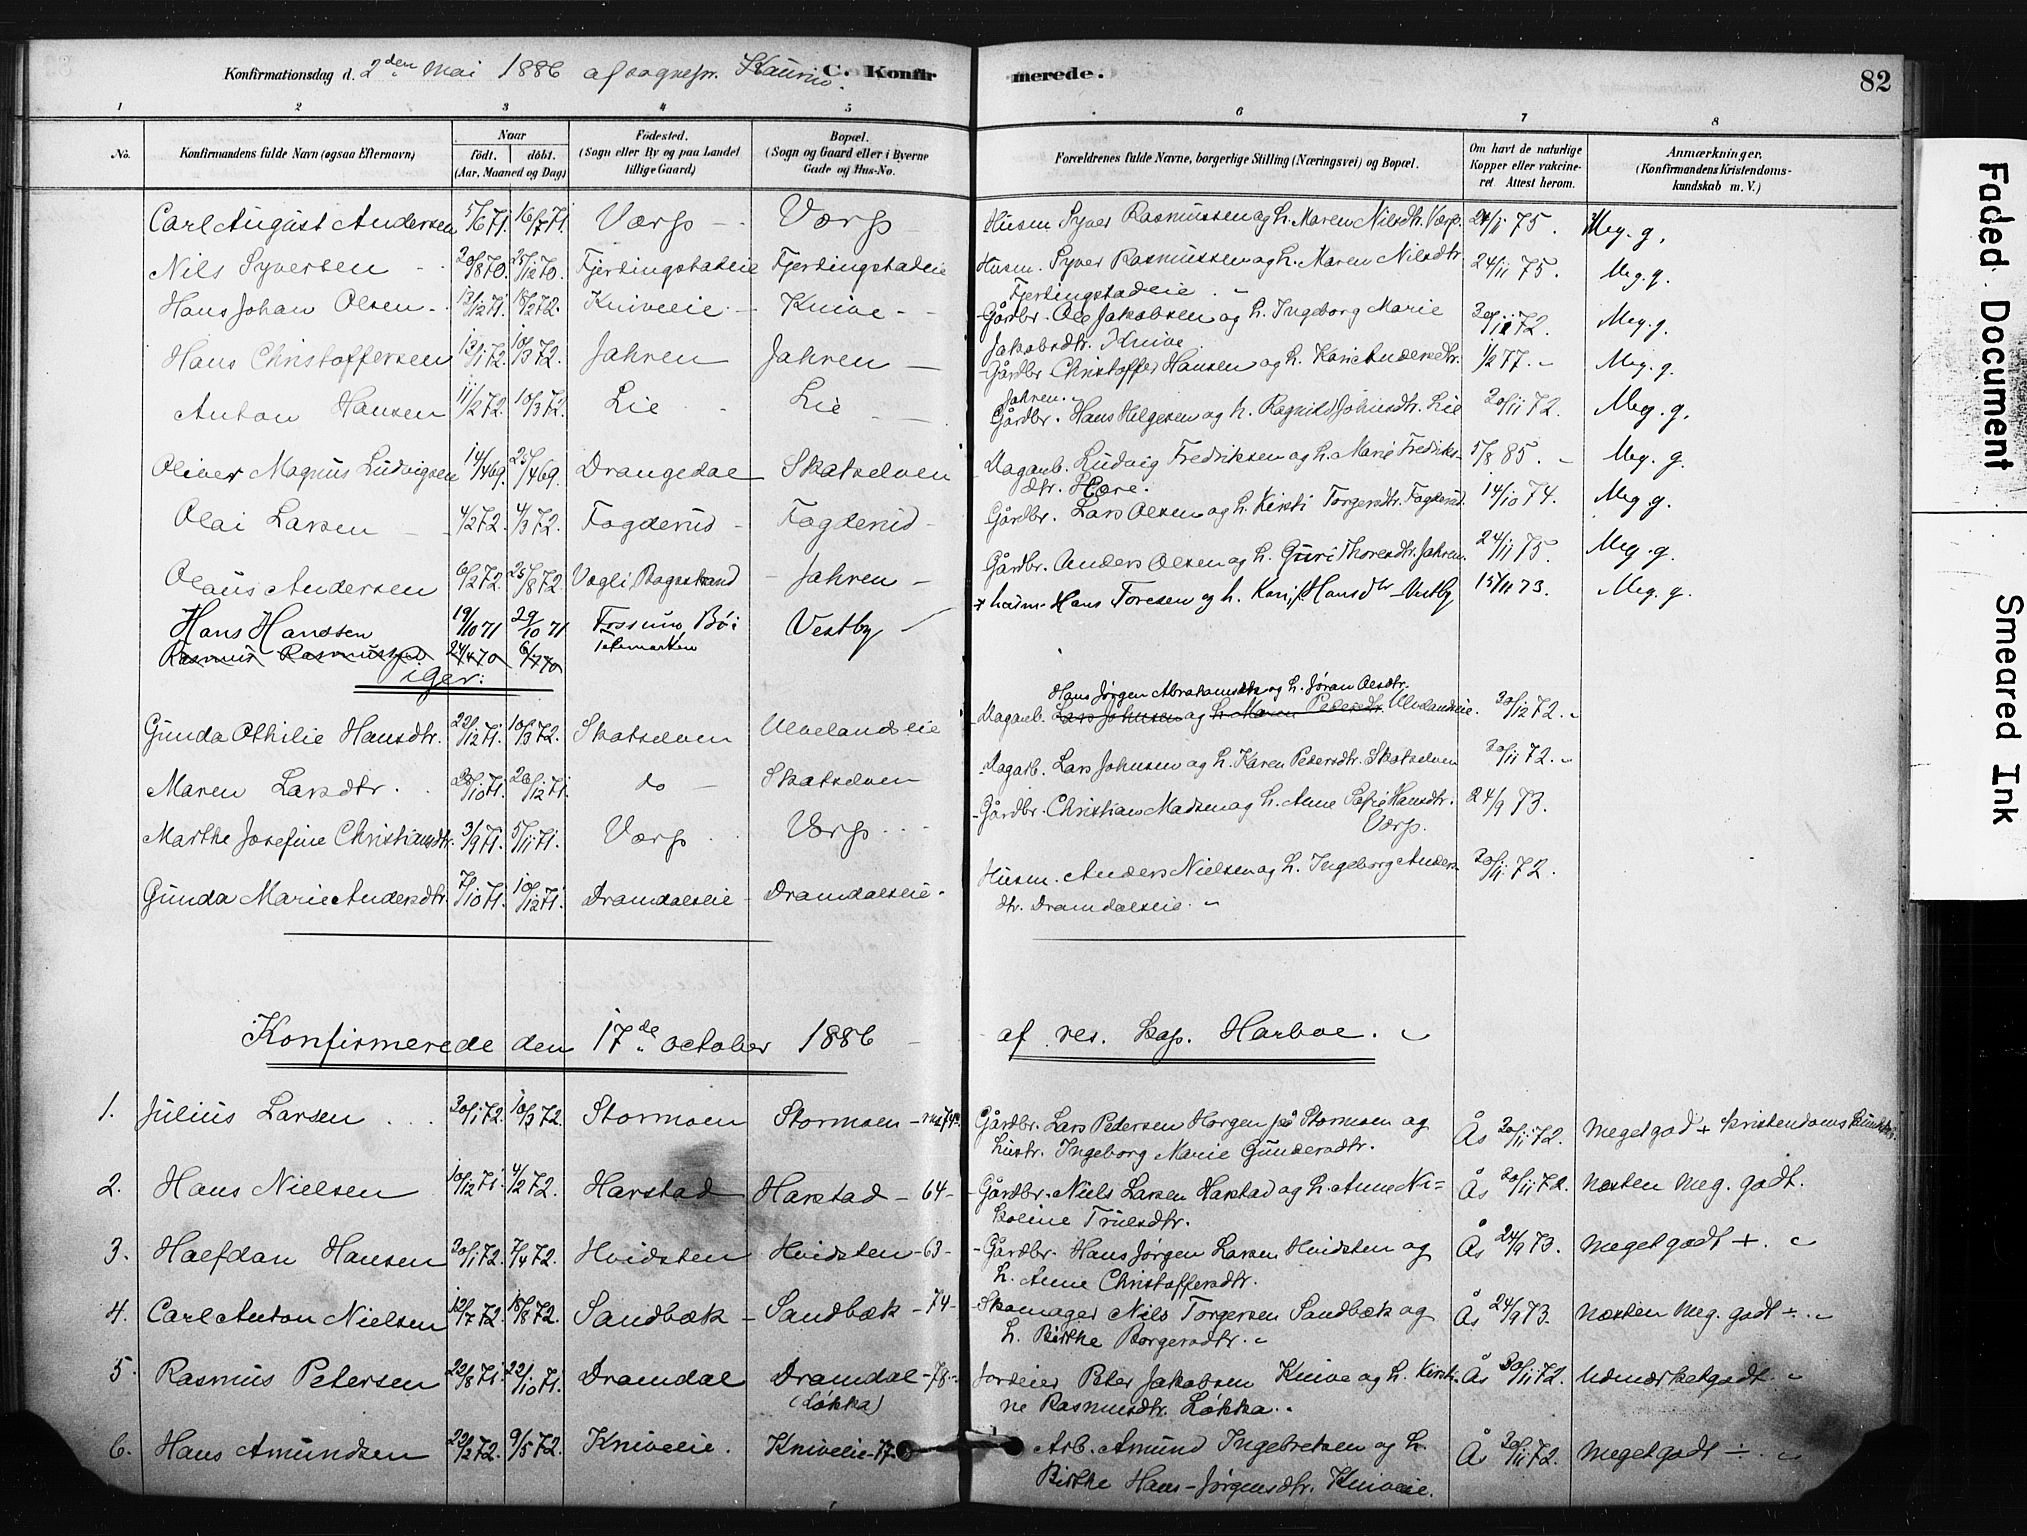 Konfirmationsdag d. 2den Mai 1886 af sognepr. C. Konfir merede. 82
1 2 3 4 5 6 7 8
No. Konfirmandens fulde Navn (ogsaa Efternavn) Naar født. døbt. (Aar, Maaned og Dag) Fødested. (Sogn eller By og paa Landet tillige Gaard) Bopæl. (Sogn og Gaard eller i Byerne Gade og Hus-No. Forældrenes fulde Navne, borgerlige Stilling (Næringsvei) og Bopæl. Om havt de naturlige Kopper eller vakcineret. Attest herom. Anmærkninger. (Konfirmandens Kristendomskundskab m. V.)
Carl August Andersen 5/6 71. 16/7 71. Værp Værp Husm Syver Rasmussen og h. Maren Nilsdtr. Værp. 24/11 75. Meg. g.
Nils Syversen 20/8 70. 25/12 70. Fjerdingstadeie Fjerdingstadeie Husm. Syver Rasmussen og h. Maren Nilsdtr. 24/11 75. Meg. g.
Fjerdingstadeie
Hans Johan Olsen 13/12 71. 18/2 72. Kniveeie Knive Gårdbr. Ole Jakobsen og h. Ingeborg Marie 30/11 72. Meg. g.
Jakobsdtr. Knive
Hans Christoffersen 13/1 72. 10/3 72. Jahren Jahren Gårdbr Christoffer Hansen og h. Kari Andersdtr. 1/2 77. Meg. g.
Jahren.
Anton Hansen 11/2 72. 10/3 72. Lie Lie Gårdbr. Hans Helgesen og h. Ragnild Johnsdtr. Lie 30/11 72. Meg. g.
Oliver Magnus Ludvigsen 14/4 69. 25/4 69. Drangedal Skotselven Dagarb. Ludvig Fredriksen og h. Marie Fredriks- 5/8 85. Meg. g.
dtr. Hære.
Olai Larsen 4/2 72. 4/3 72. Fagderud Fagderud Gårdbr. Lars Olsen og h. Kirsti Torgersdtr. Fagderud. 14/10 74. Meg. g.
Olaus Andersen 6/2 72. 25/8 72. Vegli Jahren Gårdbr. Anders Olsen og h. Guri Thoresdtr. Jahren. 24/11 75. Meg. g.
Hans Handsen 19/10 71 29/10 71 Fossum Bøi Vestby Husm. Hans Toresen og h. Kari Hansdtr Vestby 15/11 73. Meg. g.
Telemarken
Rasmus Rasmussen 24/4 70 6/7 70
Piger:
Hans Jørgen Abrahamsen og h. Jøran Olsdtr.
Gunda Othilie Hansdtr. 22/12 71. 10/3 72. Skotselven Ulvelandseie Dagarb. Lars Johnsen og h. Maren Pedersdtr. Ulvelandseie. 30/12 72.
Maren Larsdtr. 26/12 71. do Skotselven Dagarb. Lars Johnsen og h. Karen Pedersdtr. Skotselven 30/11 72.
Marthe Josefine Christiansdtr. 3/9 71. 5/11 71. Værp Værp Gårdbr. Christian Madsen og h. Anne Sofie Hansdtr. 24/9 73.
Værp.
Gunda Marie Andersdtr. 7/10 71. 10/12 71. Dramdalseie Dramdalseie Husm. Anders Nielsen og h. Ingeborg Anders- 30/11 72.
dtr. Dramdalseie
Konfirmerede den 17de october 1886 af res. kap. Harboe.
1. Julius Larsen 30/1 72. 10/3 72. Stormoen Stormoen Gårdbr. Lars Petersen Horgen på Stormoen og Ås 30/11 72. Meget god + kristendoms
hustr. Ingeborg Marie Gundersdtr.
2. Hans Nielsen 10/12 71. 4/2 72. Harstad Harstad – 64 – Gårdbr. Niels Larsen Harstad og h. Anne Ni= Ås 30/11 72. Næsten Meg. godt.
koline Truelsdtr.
3. Halfdan Hansen 30/1 72. 7/4 72. Hvidsten Hvidsten – 63 – Gårdbr. Hans Jørgen Larsen Hvidsten og Ås 24/9 73. Meget godt +.
h. Anne Christoffersdtr.
4. Carl Anton Nielsen 12/7 72. 18/8 72. Sandbæk Sandbæk – 74 – Skomager Nils Torgersen Sandbæk og Ås 24/9 73. Næsten Meg. godt ÷.
h. Birthe Borgersdtr.
5. Rasmus Petersen 22/8 71. 22/10 71. Dramdal Dramdal – 78 – Jordeier Peter Jakobsen Knive og h. Kirsti- Ås 30/11 72. Udmærket godt.
(Løkka) ne Rasmusdtr. Løkka.
6. Hans Amundsen 22/2 72. 9/5 72. Kniveeie. Kniveeie – 17 Arb. Amund Ingebretsen og h. Ås 30/11 72. Meget godt ÷.
Birthe Hans-Jørgensdtr. Kniveeie.
Faded Document
Smeared Ink